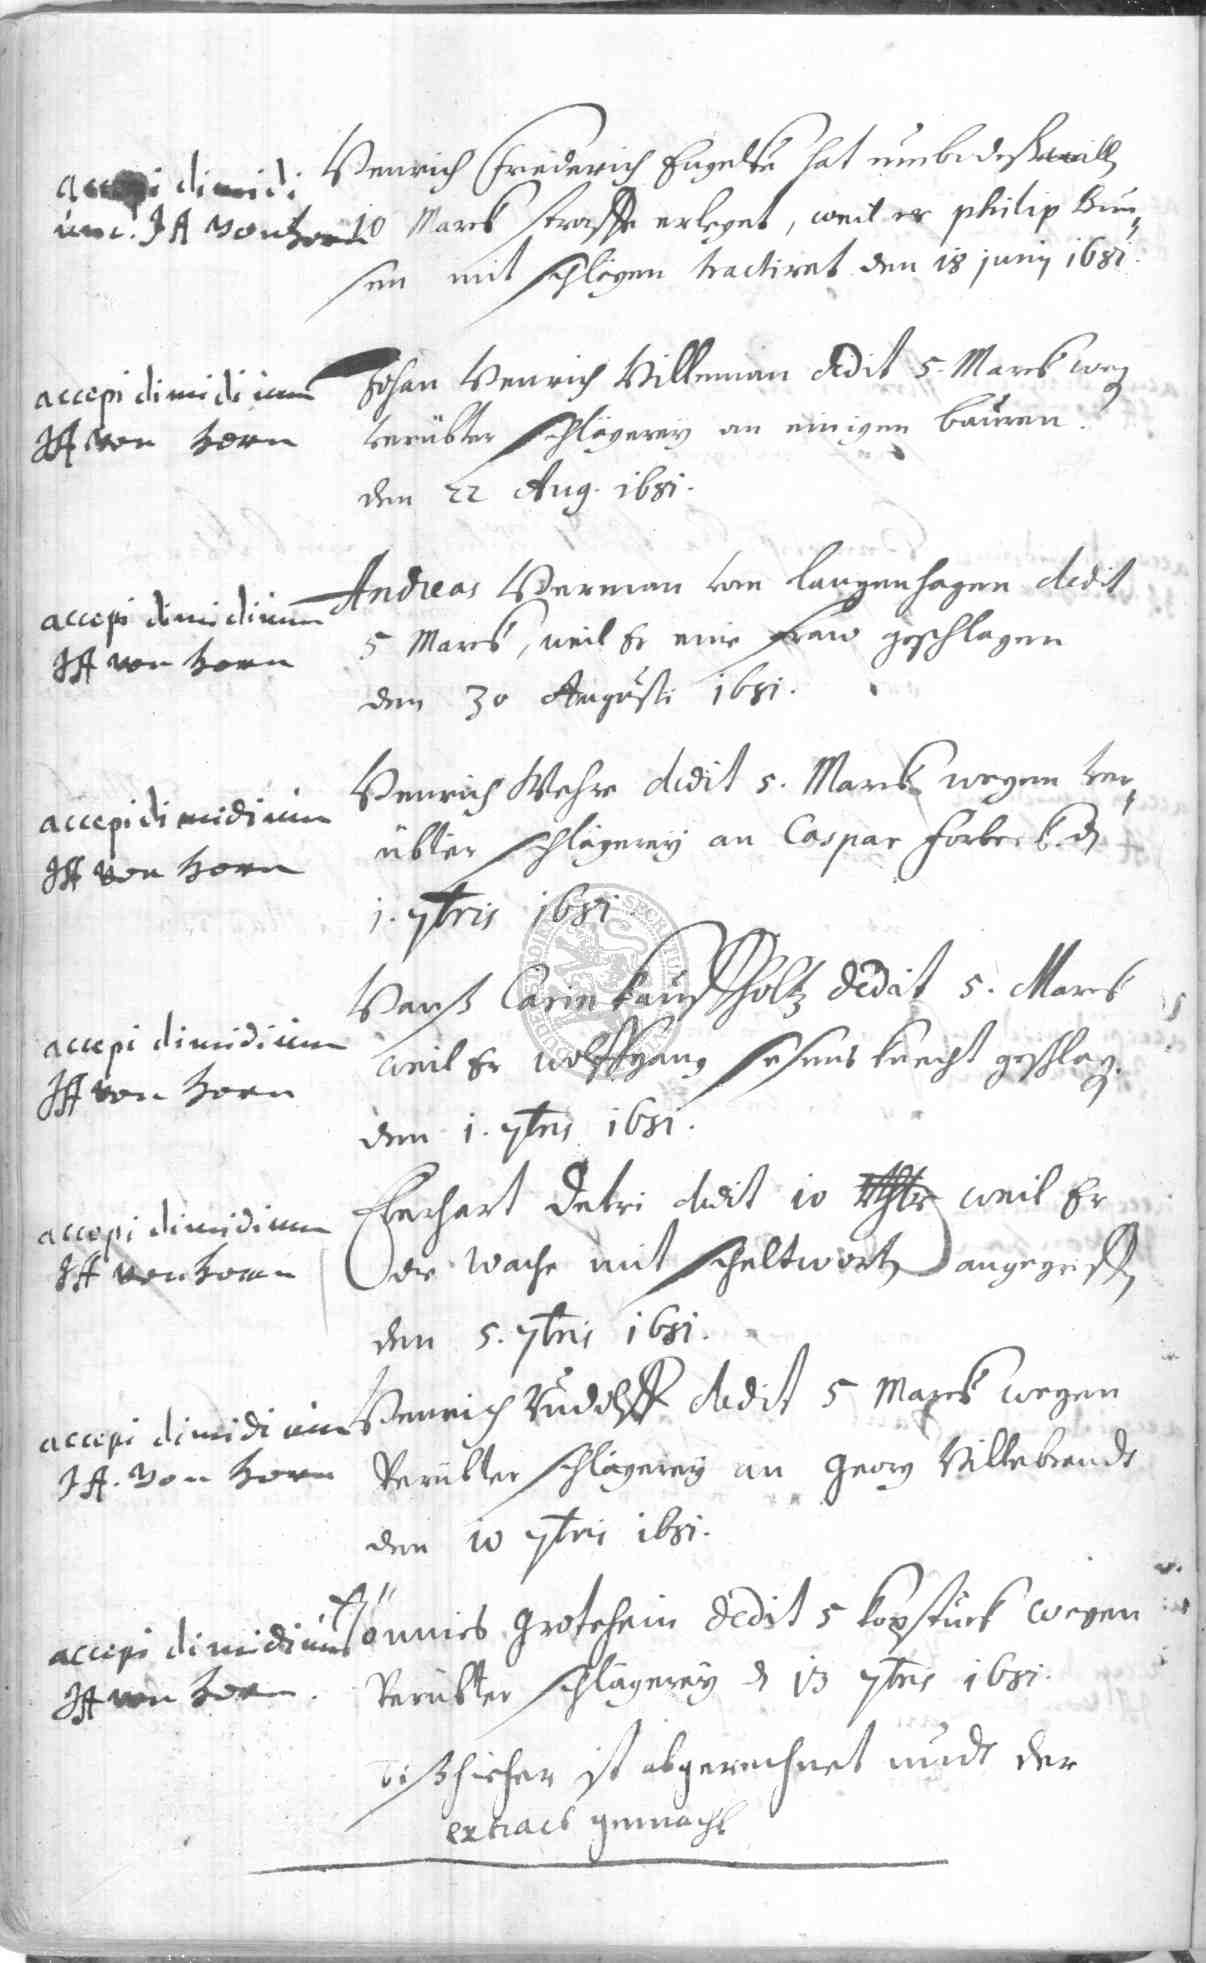 accepi dimidi
um. JA von horn
Henrich Friederich Engelke hat umb deßwill
10 Marck straffe erleget, weil er philip Bun,,
sen mit schlägen tractiret den 18 junij 1681.
accepi dimidium
JA von horn
Johan Henrich Villeman dedit 5. Marck weg
verübter schlägerey an einigen bauren.
den 22 Aug. 1681.
accepi dimidium
JA von horn
Andreas Herman von langenhagen dedit
5 Marck, weil Er eine fraw geschlagen
den 30 Augusti 1681.
accepi dimidium
JA von horn
Henrich Wehre dedit 5. Marck wegen ver,,
übter schlägerey an Caspar forbeck. d
1. 7bris 1681.
accepi dimidium
JA von horn
Hanß holtz dedit 5. Marck
weil Er wolffgang knecht geschlag.
den 1. 7bris 1681.
accepi dimidium
JA von horn
Eberhart Detri dedit 10 weil Er
die wache mit scheltwort angegriff
den 5. 7bris 1681.
accepi dimidium
JA. von horn
Henrich Rudolff dedit 5 Marck wegen
Verübter schlägerey an Georg Villebrandt
den 10 7bris 1681.
accepi dimidium
JA von horn.
Tönnies Grotehein dedit 5 kopstuck wegen
Verübter schlägerey d 13 7bris 1681.
bißhieher ist abgerechnet undt der
extract gemacht